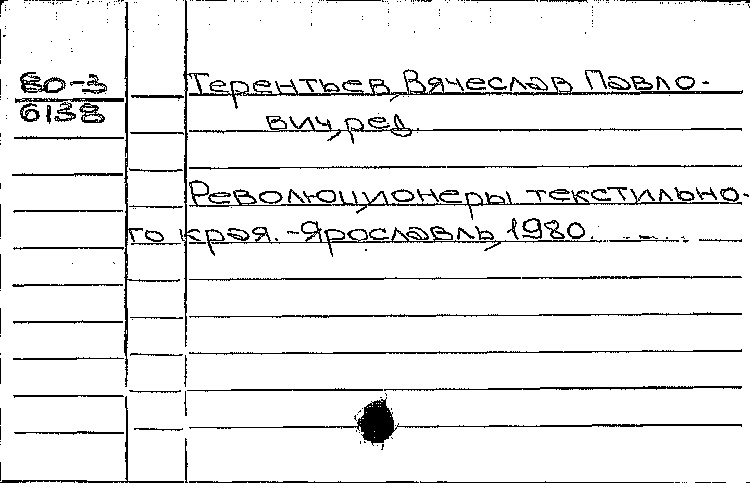 80-3
6138
Терентьев, Вячеслав Павло-
вич, ред.
Революционеры текстильно-
го края. - Ярославль, 1980.